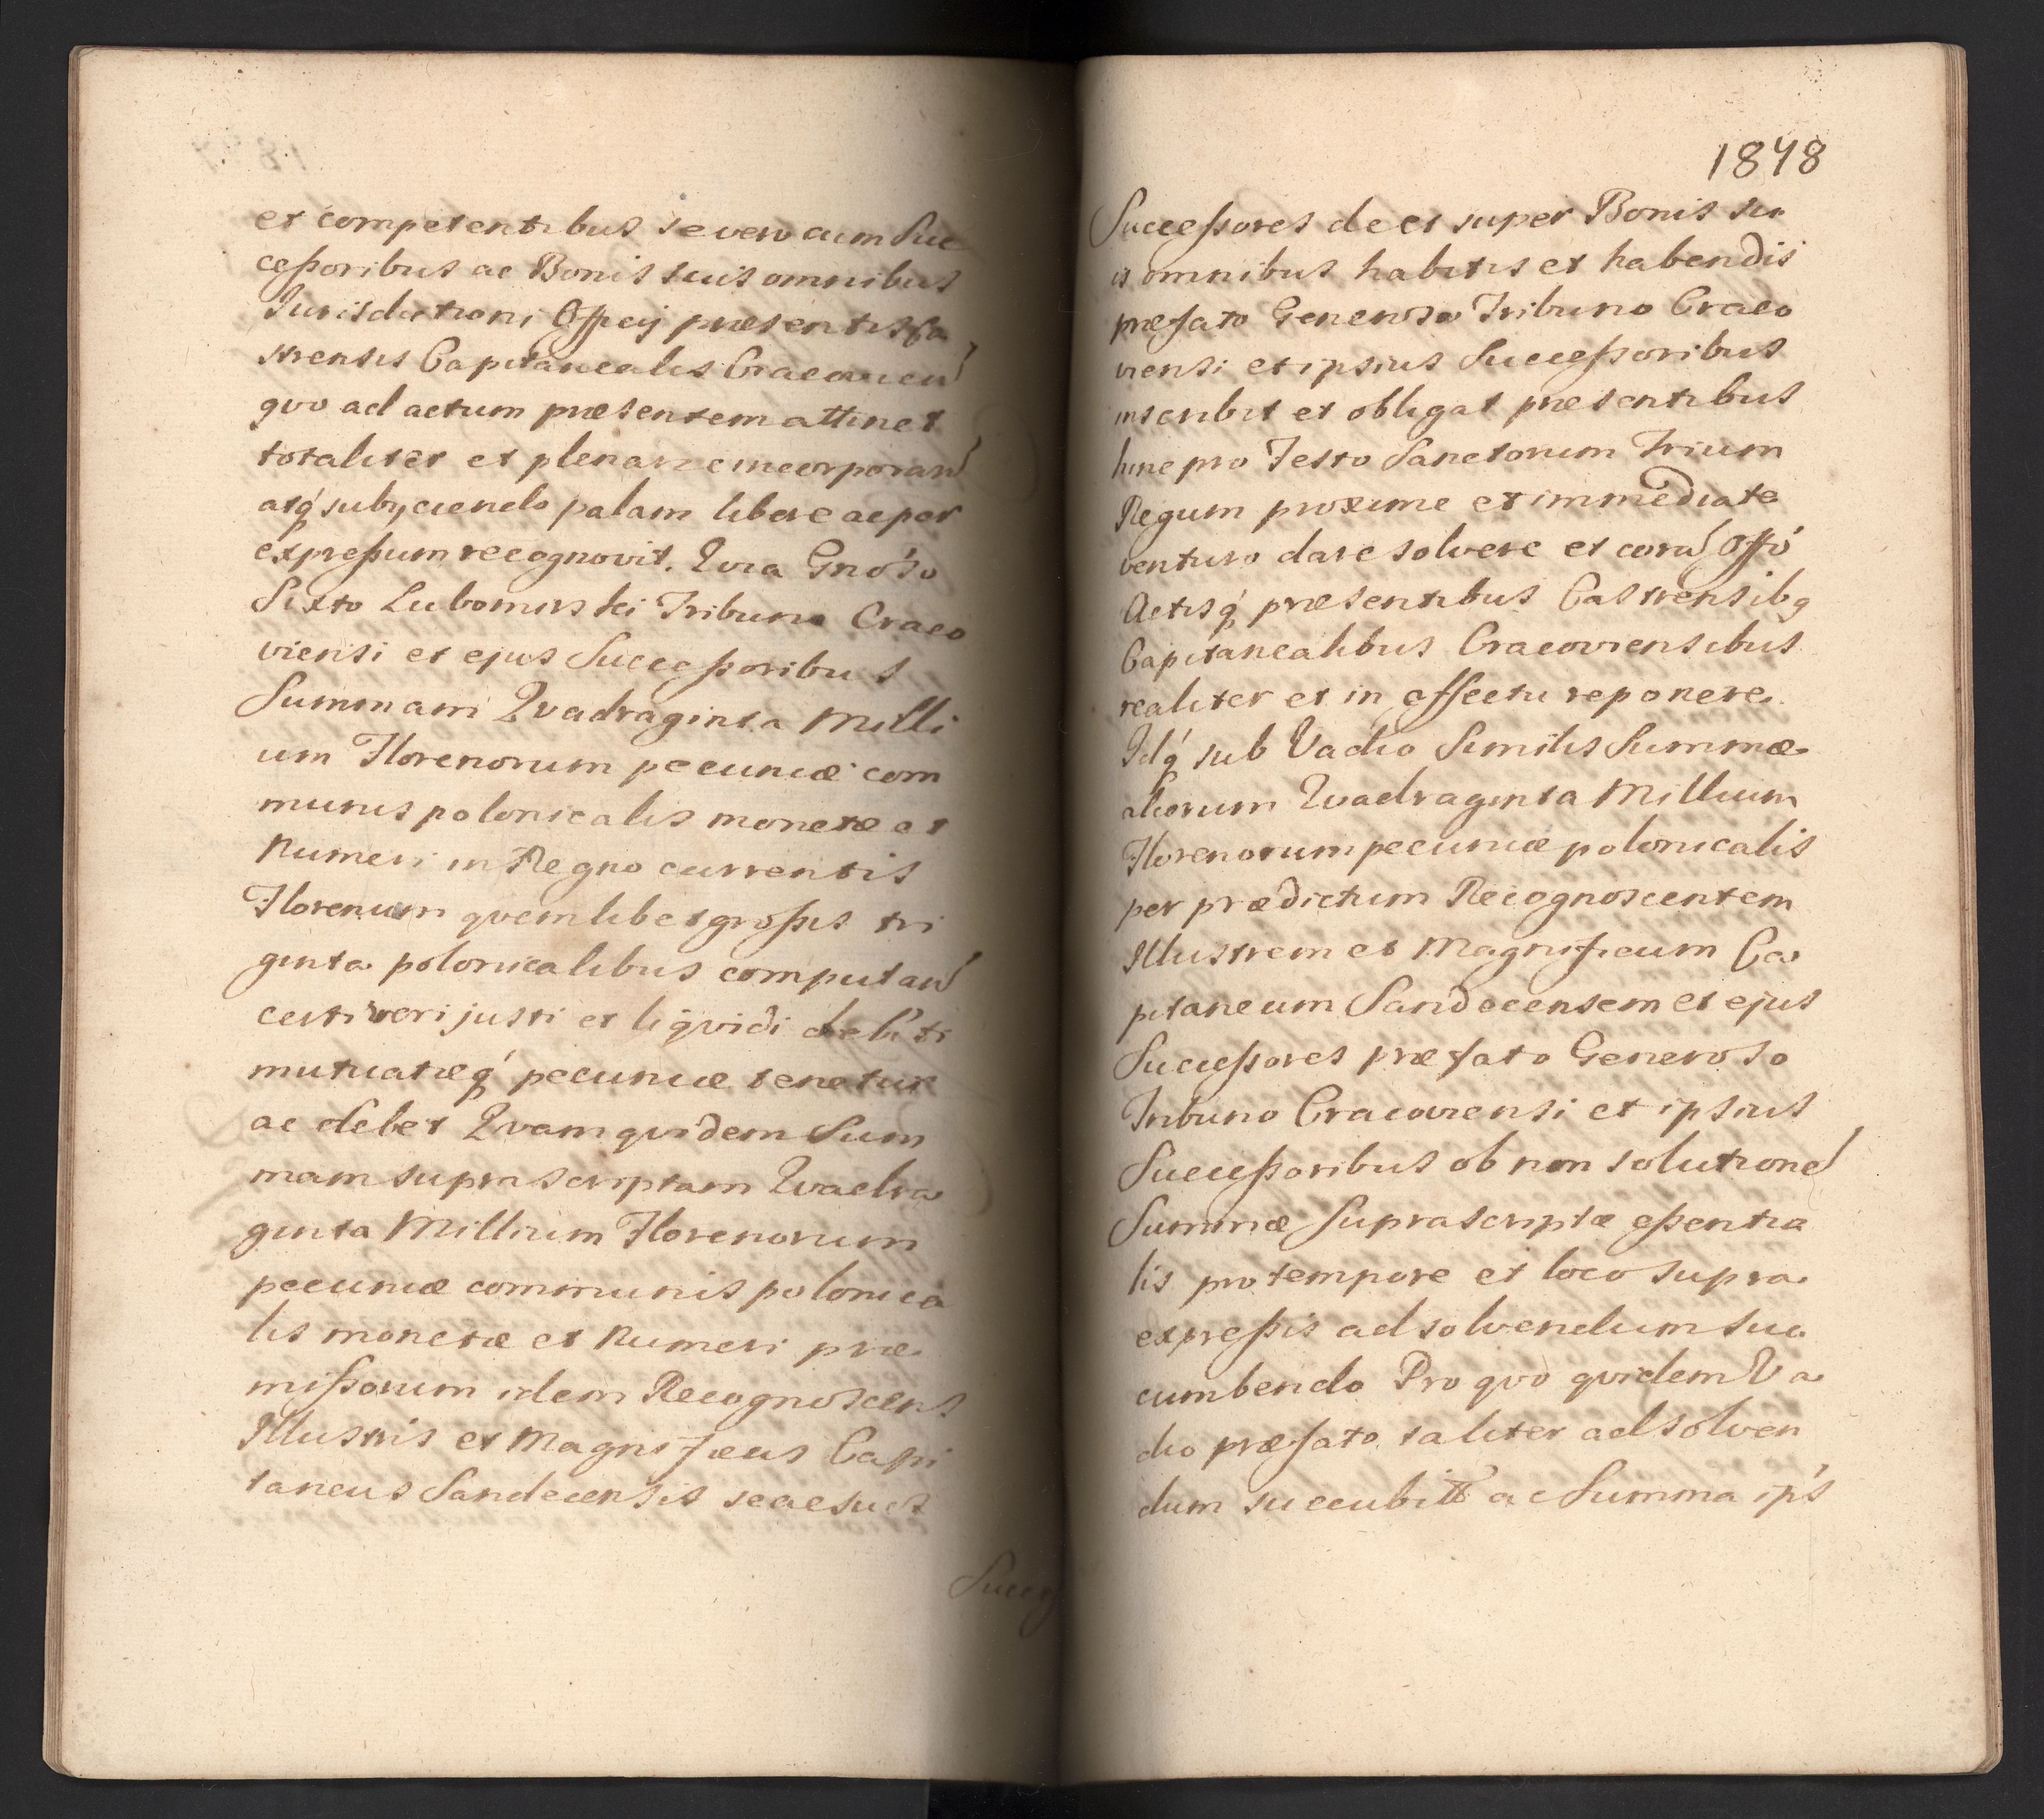 et competentibus se vero cum Suc
cessoribus ac Bonis suis omnibus
Jurisdictioni Officij præsentis Ca
strensis Capitanealis Cracovien
qvo ad actum præsentem attinet
totaliter et plenarie incorporan
atq́ subijciendo palam libere ac per
expressum recognovit. Qvia Gnóso
Sixto Lubomirski Tribuno Craco
viensi et ejus Successoribus
Summam Qvadraginta Milli
um Florenorum pecuniæ com
munis polonicalis monetæ et
Numeri in Regno currentis
Florenum qvemlibet grossis tri
ginta polonicalibus computan
certi veri justi et liqvidi debiti
mutuatæq́ pecuniæ tenetur
ac debet Qvam qvidem Sum
mam suprascriptam Qvadra
ginta Millium Florenorum
pecuniæ communis polonica
lis monetæ et Numeri præ
missorum idem Recognoscens
Illustris et Magnificus Capi
taneus Sandecensis se ac suos
Success
1848
Successores de et super Bonis su
is omnibus habitis et habendis
præfato Generoso Tribuno Craco
viensi et ipsius Successoribus
inscribit et obligat præsentibus
hinc pro Festo Sanctorum Trium
Regum proxime et immediate
venturo dare solvere et cora Offó
Actisq́ præsentibus Castrensibq
Capitanealibus Cracoviensibus
realiter et in effectu reponere.
Idq́ sub Vadio Similis Summæ
aliorum Qvadraginta Millium
Florenorum pecuniæ polonicalis
per prædictum Recognoscentem
Illustrem et Magnificum Ca
pitaneum Sandecensem et ejus
Successores præfato Generoso
Tribuno Cracoviensi et ipsius
Successoribus ob non solutione
Summæ Suprascriptæ essentia
lis pro tempore et loco supra
expressis ad solvendum suc
cumbendo Pro qvo qvidem Va
dio præfato taliter ad solven
dum succubitt ac Summa iṕs